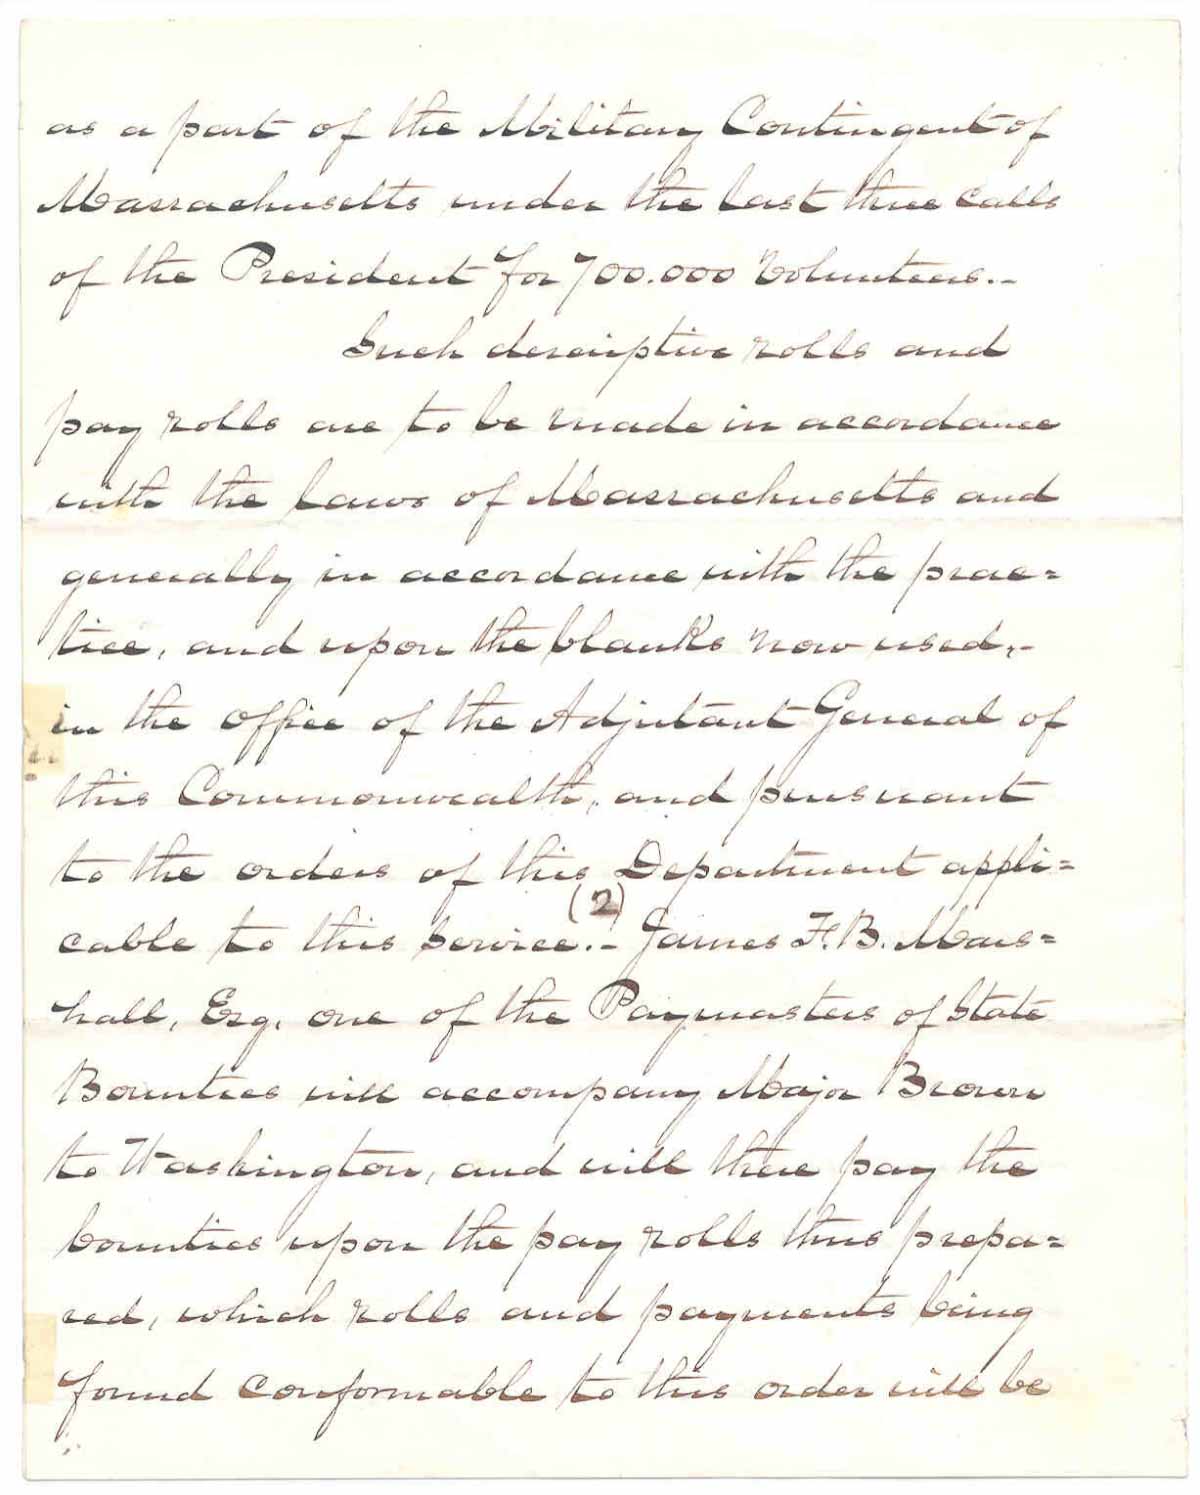 as a part of the Military Contingent of
Massachusetts under the last three Calls
of the President for 700.000 Volunteers.-
Such descriptive rolls and
pay rolls are to be made in accordance
with the laws of Massachusetts and
generally in accordance with the prac=
tice, and upon the blanks now used,-
in the office of the Adjutant General of
this Commonwealth, and pursuant
to the orders of this Department appli=
(2)
cable to this Service.- James F. B. Mars=
hall, Esq. one of the Paymasters of State
Bounties will accompany Major Brown
to Washington, and will there pay the
bounties upon the pay rolls thus prepa=
red, which rolls and payments being
found conformable to this order will be